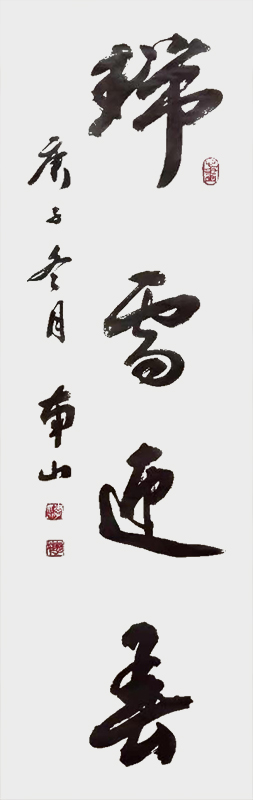 瑞雪迎春
庚子冬月 東山